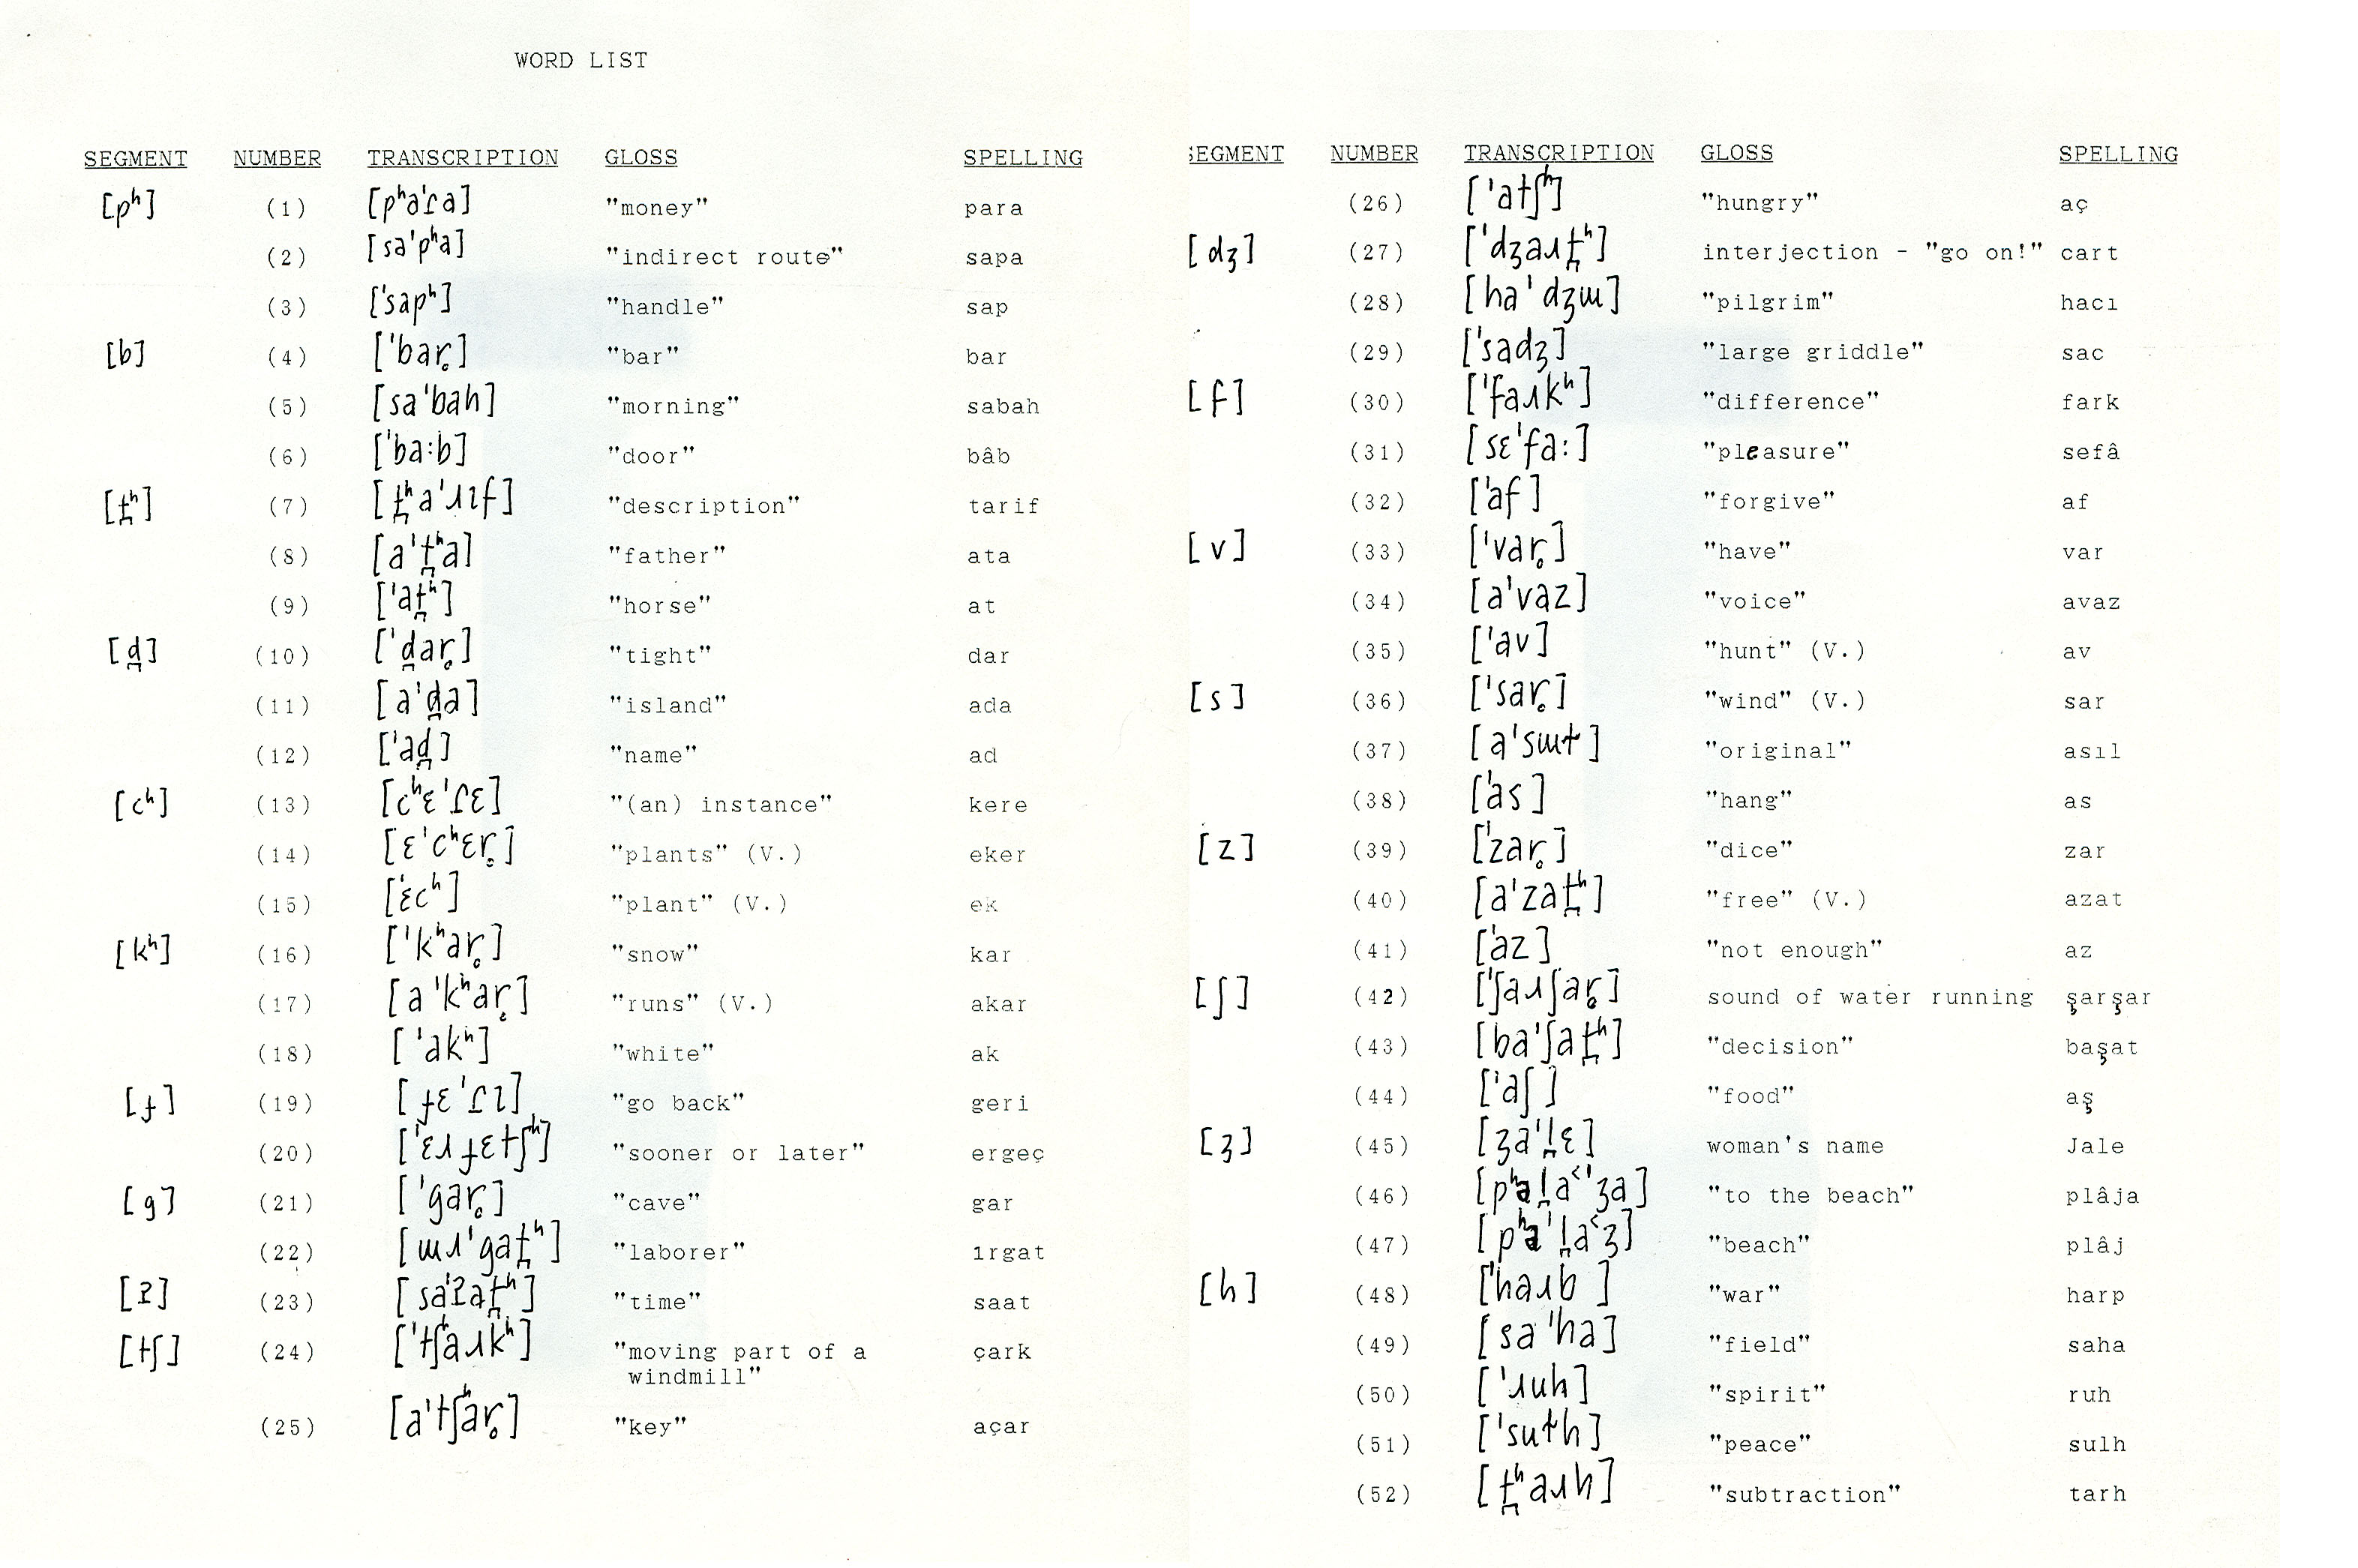 WORD LIST
SEGMENT NUMBER TRANSCRIPTION GLOSS SPELLING
[pʰ] (1) [pʰaˈɾa] "money" para
(2) [saˈpʰa] "indirect route" sapa
(3) [ˈsapʰ] "handle" sap
[b] (4) [ˈbar̥] "bar" bar
(5) [saˈbah] "morning" sabah
(6) [ˈba:b] "door" bâb
[t̪ʰ] (7) [t̪ʰaˈɹɪf] "description" tarif
(8) [aˈt̪ʰa] "father" ata
(9) [ˈat̪ʰ] "horse" at
[d̪] (10) [ˈd̪ar̥] "tight" dar
(11) [aˈd̪a] "island" ada
(12) [ˈad̪] "name" ad
[cʰ] (13) [cʰɛˈɾɛ] "(an) instance" kere
(14) [ɛˈcʰɛr̥] "plants" (V.) eker
(15) [ˈɛcʰ] "plant" (V.) ek
[kʰ] (16) [ˈkʰar̥] "snow" kar
(17) [aˈkʰar̥] "runs" (V.) akar
(18) [ˈakʰ] "white" ak
[ɟ] (19) [ɟɛˈɾɪ] "go back" geri
(20) [ˈɛɹɟɛtʃʰ] "sooner or later" ergeç
[g] (21) [ˈgar̥] "cave" gar
(22) [ɯɹˈgat̪ʰ] "laborer" ırgat
[ʔ̱] (23) [saˈʔ̱at̪ʰ] "time" saat
[tʃ] (24) [ˈtʃʰaɹkʰ] "moving part of a çark
windmill"
(25) [aˈtʃʰar̥] "key" açar
SEGMENT NUMBER TRANSCRIPTION GLOSS SPELLING
(26) [ˈatʃʰ] "hungry" aç
[dʒ] (27) [ˈdʒaɹt̪ʰ] interjection - "go on!" cart
(28) [haˈdʒɯ] "pilgrim" hacı
(29) [ˈsadʒ] "large griddle" sac
[f] (30) [ˈfaɹkʰ] "difference" fark
(31) [sɛˈfa:] "pleasure" sefâ
(32) [ˈaf] "forgive" af
[v] (33) [ˈvar̥] "have" var
(34) [aˈvaz] "voice" avaz
(35) [ˈav] "hunt" (V.) av
[s] (36) [ˈsar̥] "wind" (V.) sar
(37) [aˈsɯɫ] "original" asıl
(38) [ˈas] "hang" as
[z] (39) [ˈzar̥] "dice" zar
(40) [aˈzat̪ʰ] "free" (V.) azat
(41) [ˈaz] "not enough" az
[ʃ] (42) [ˈʃaɹʃar̥] sound of water running şarşar
(43) [baˈʃat̪ʰ] "decision" başat
(44) [ˈaʃ] "food" aş
[ʒ] (45) [ʒaˈl̪ɛ] woman's name Jale
(46) [pʰəl̪a˂ˈʒa] "to the beach" plâja
(47) [pʰəˈl̪a˂ʒ] "beach" plâj
[h] (48) [ˈhaɹb] "war" harp
(49) [saˈha] "field" saha
(50) [ˈɹuh] "spirit" ruh
(51) [ˈsuɫh] "peace" sulh
(52) [t̪ʰaɹh] "subtraction" tarh